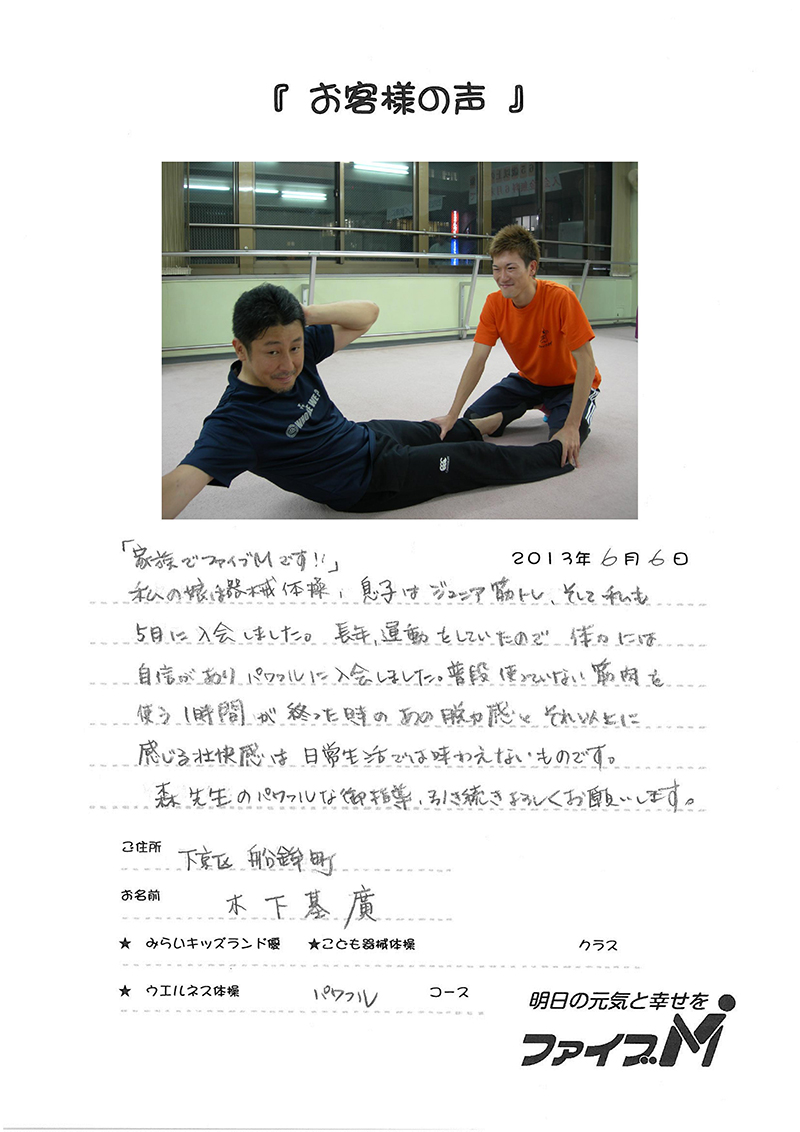 『 お客様の声 』
「家族でファイブMです!!」
2013年 6月 6日
私の娘は器械体操、息子はジュニア筋トレ、そして私も
5月に入会しました。長年、運動をしていたので 体力には
自信がありパワフルに入会しました。普段使っていない筋肉を
使う1時間が終った時のあの脱力感と それ以上に
感じる壮快感は日常生活では味わえないものです。
森先生のパワフルな御指導、引き続きよろしくお願いします。
ご住所 下京区 船鉾町
お名前 木下基廣
★ みらいキッズランド優 ★こども器械体操 クラス
★ ウエルネス体操 パワフル コース
明日の元気と幸せを
ファイブM